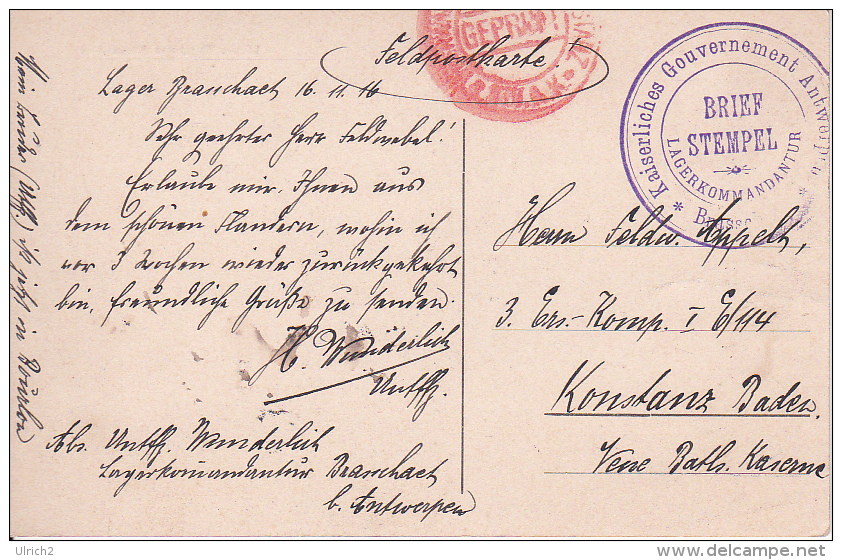 Feldpostkarte!
Lager Brasschaet 16. 11. 16
Sehr geehrter Herr Feldwebel!
Erlaube mir, Ihnen aus
dem schönen Flandern, wohin ich
vor 3 Wochen wieder zurückgekehrt
bin, freundliche Grüße zu senden.
H. Wunderlich
Untffz.
Abs. Untffz. Wunderlich
Lagerkommandantur Brasschaet
b. Antwerpen
ist jetzt in
GEPRÜFT
Kaiserliches Gouvernement Antwerpen
BRIEF
STEMPEL
LAGERKOMMANDANTUR
Herrn Feldw. Appelt,
3. Ers.-Komp. I E/114
Konstanz Baden.
Kaserne
Ulrich2
www.delcampe.net